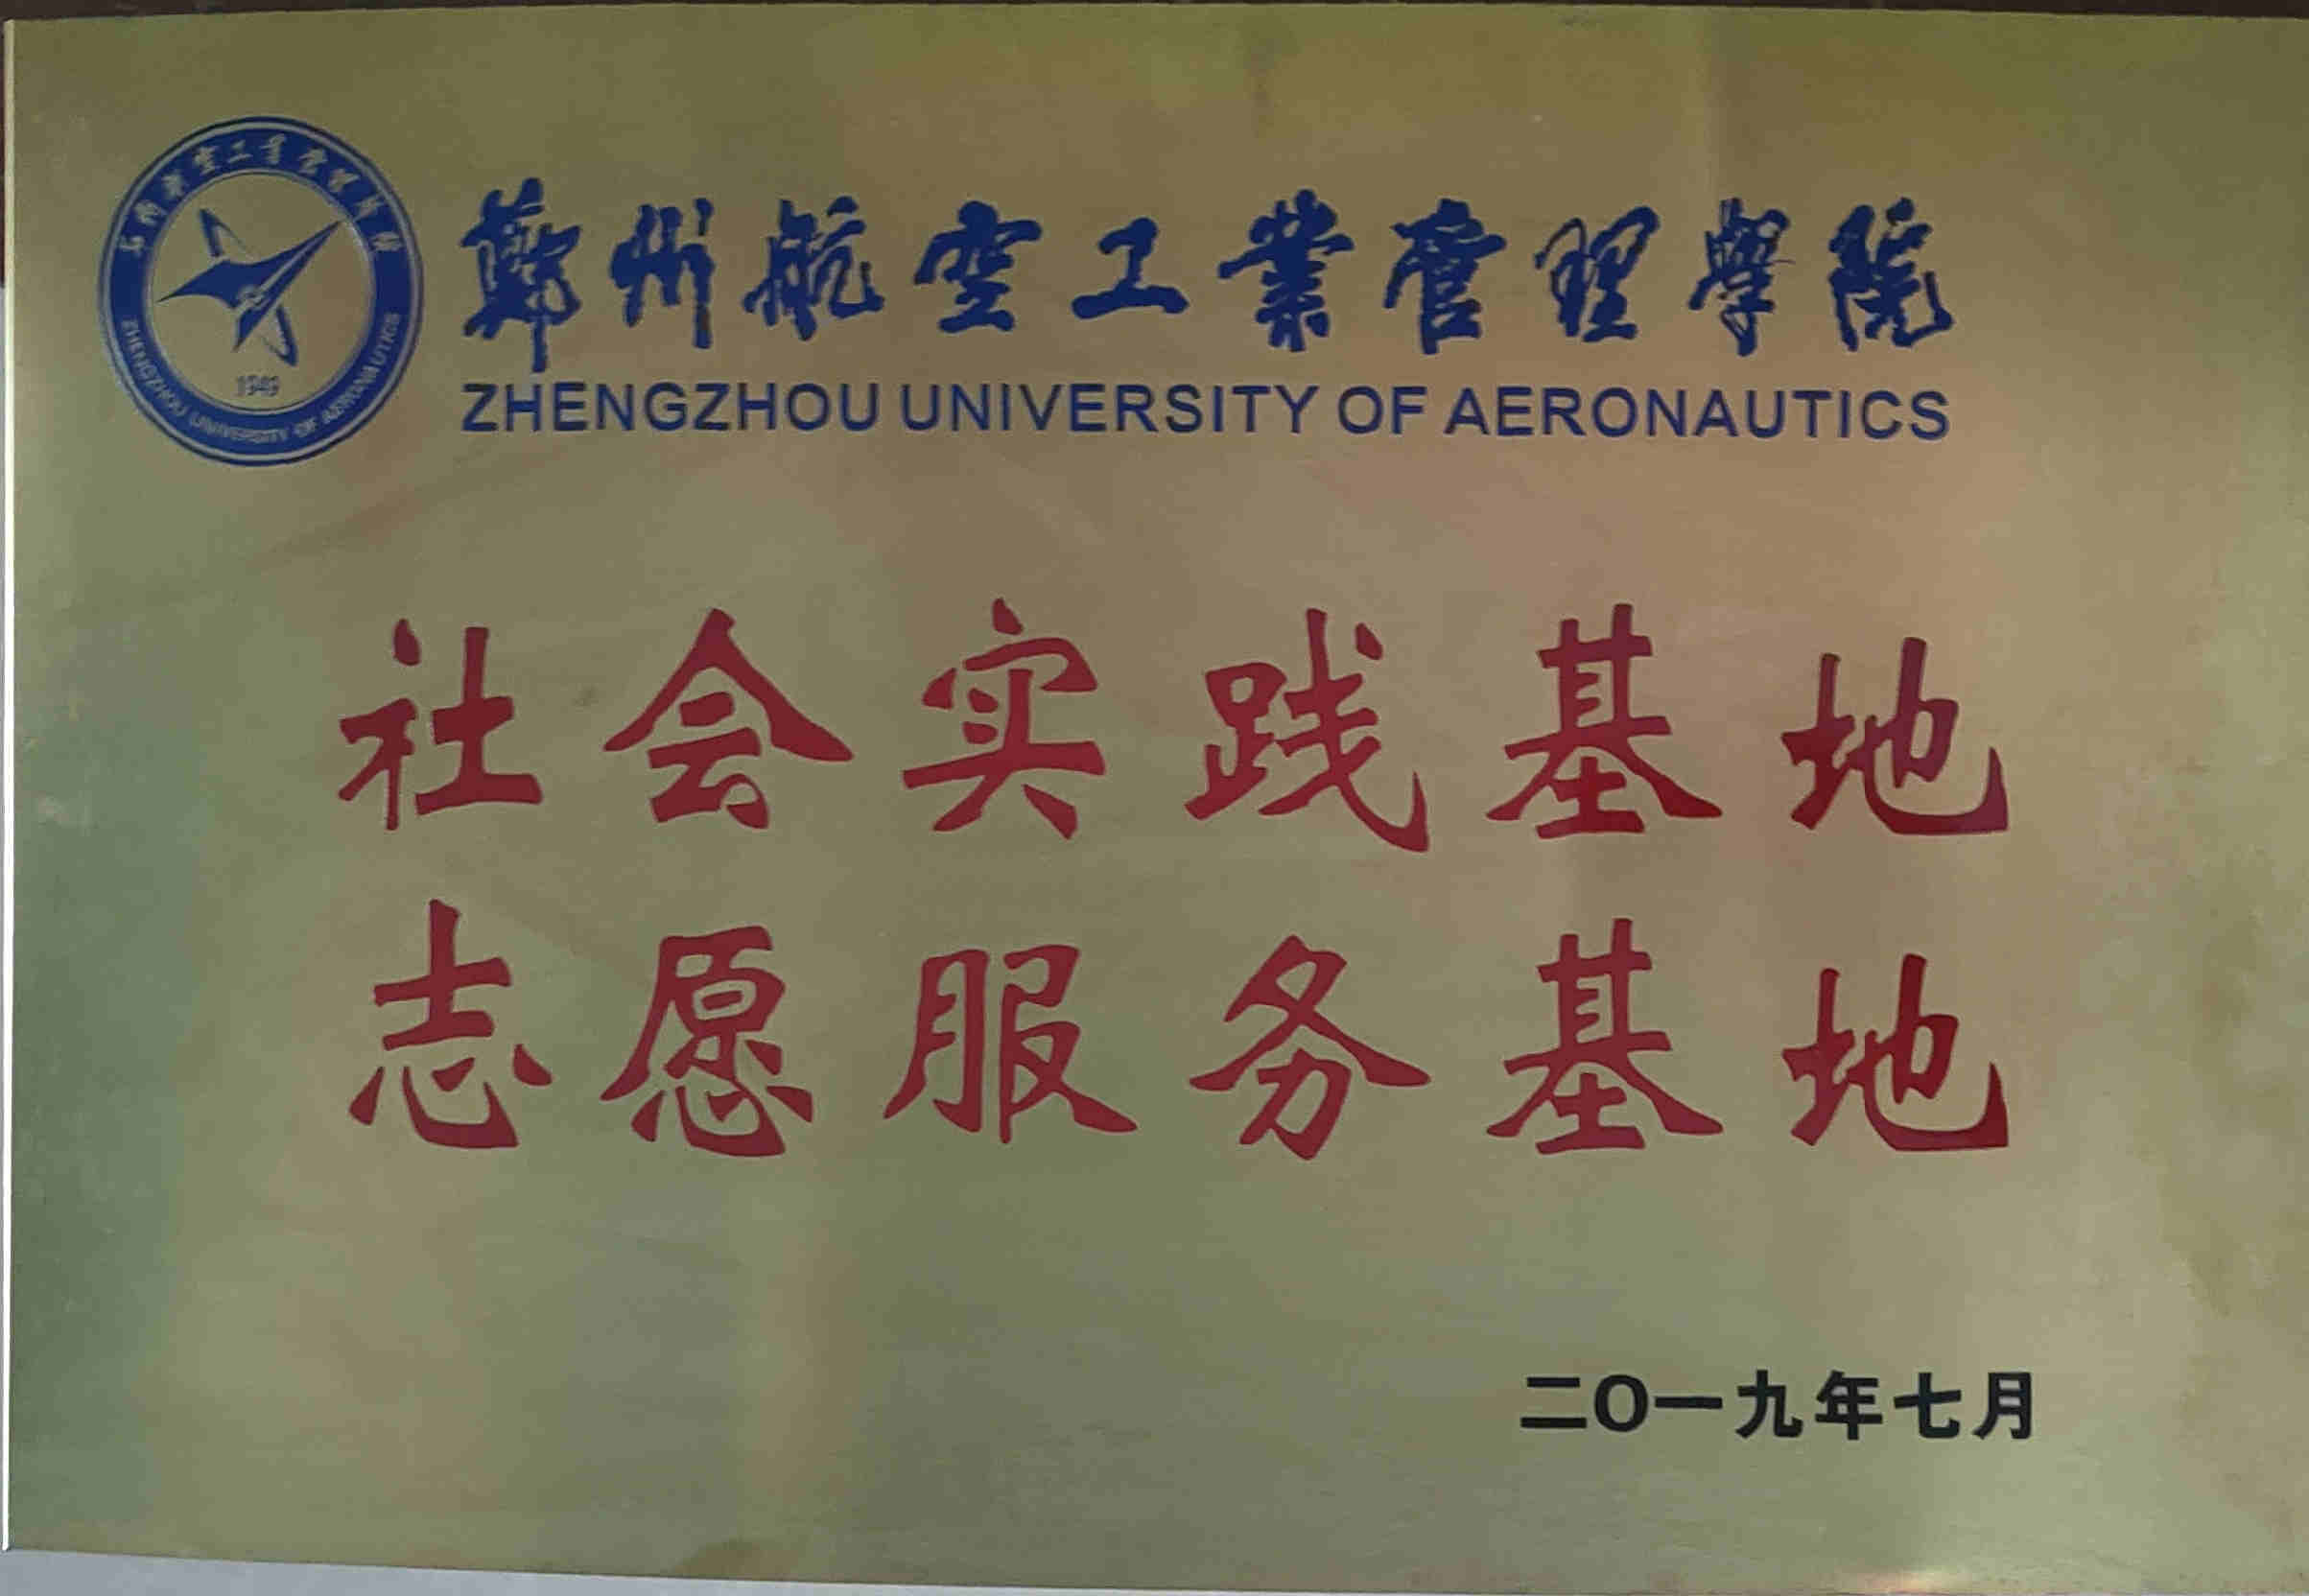 鄭州航空工業管理學院
ZHENGZHOU UNIVERSITY OF AERONAUTICS
郑州航空工业管理学院
1949
ZHENGZHOU UNIVERSITY OF AERONAUTICS
社会实践基地
志愿服务基地
二〇一九年七月